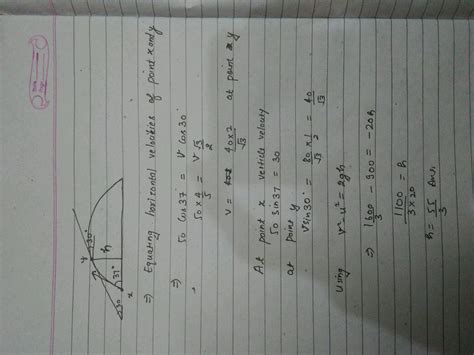 y
30°
h
37°
30
x
⇒ Equating horizontal velocities of point x and y
⇒ 50 cos 37 = V cos 30
50 × 4/5 = V √3/2
V = 40×2/√3 at point y
At point x verticle velocity
50 sin 37 = 30
at point y
V sin 30 = 80/√3 × 1/2 = 40/√3
Using V² - u² = 2gh
⇒ 1600/3 - 900 = -20h
1100/3×20 = h
h = 55/3 Ans.